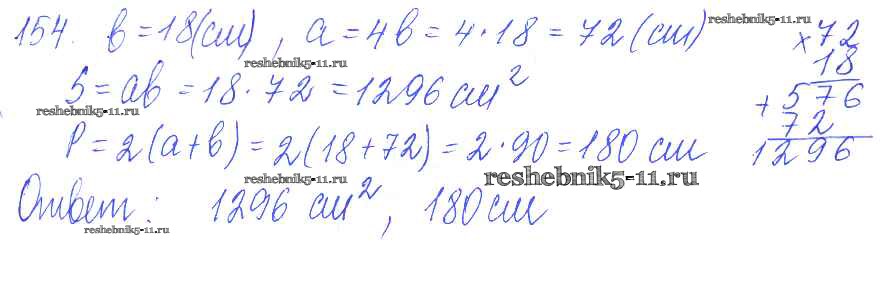 154. b = 18 (см), a = 4b = 4 · 18 = 72 (см)
reshebnik5-11.ru
reshebnik5-11.ru
× 72
18
+ 576
72
1296
S = ab = 18 · 72 = 1296 см²
reshebnik5-11.ru
P = 2(a + b) = 2(18 + 72) = 2 · 90 = 180 см
reshebnik5-11.ru
reshebnik5-11.ru
Ответ: 1296 см², 180 см
reshebnik5-11.ru